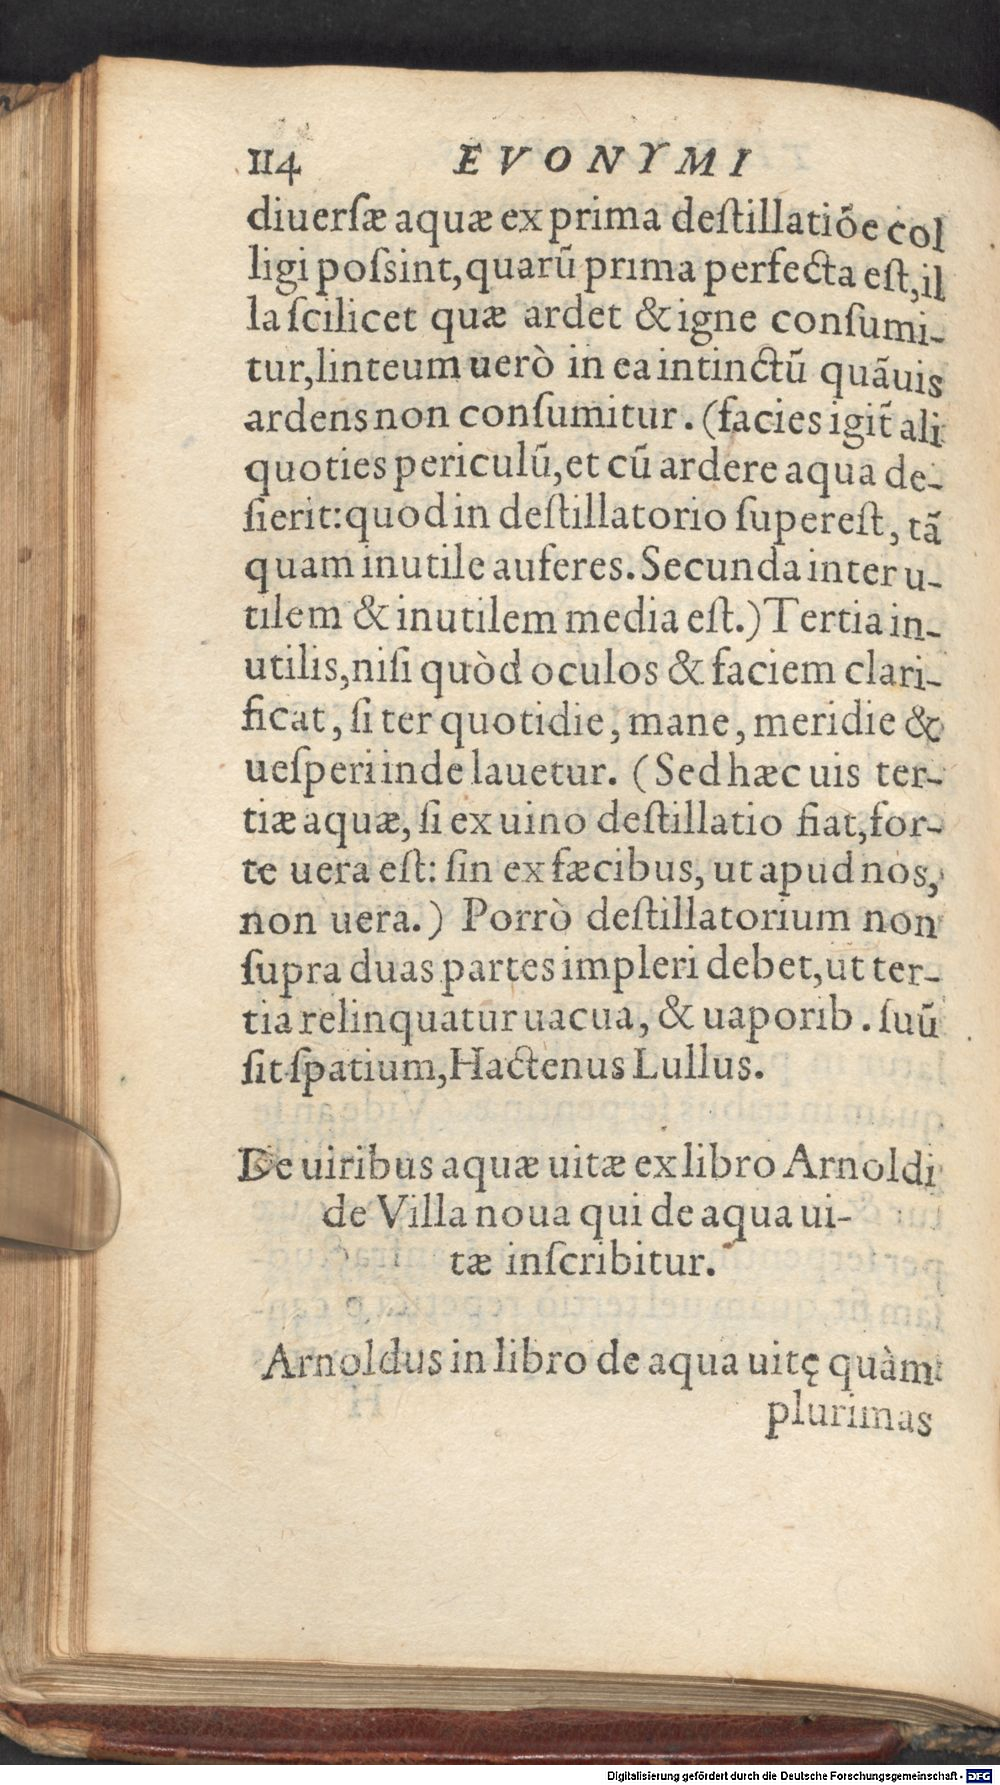 114 EVONYMI
diuerſæ aquæ ex prima deſtillatiõe col
ligi poſsint, quarũ prima perfecta eſt, il
la ſcilicet quæ ardet & igne conſumi-
tur, linteum uerò in ea intinctũ quãuis
ardens non conſumitur. (facies igit̃ ali
quoties periculũ, et cũ ardere aqua de-
ſierit: quod in deſtillatorio ſupereſt, tã
quam inutile auferes. Secunda inter u-
tilem & inutilem media eſt.) Tertia in-
utilis, niſi quòd oculos & faciem clari-
ficat, ſi ter quotidie, mane, meridie &
ueſperi inde lauetur. (Sed hæc uis ter-
tiæ aquæ, ſi ex uino deſtillatio fiat, for-
te uera eſt: ſin ex fæcibus, ut apud nos,
non uera.) Porrò deſtillatorium non
ſupra duas partes impleri debet, ut ter-
tia relinquatur uacua, & uaporib. ſuũ
ſit ſpatium, Hactenus Lullus.
De uiribus aquæ uitæ ex libro Arnoldi
de Villa noua qui de aqua ui-
tæ inſcribitur.
Arnoldus in libro de aqua uitę quàm
plurimas
Digitalisierung gefördert durch die Deutsche Forschungsgemeinschaft - DFG